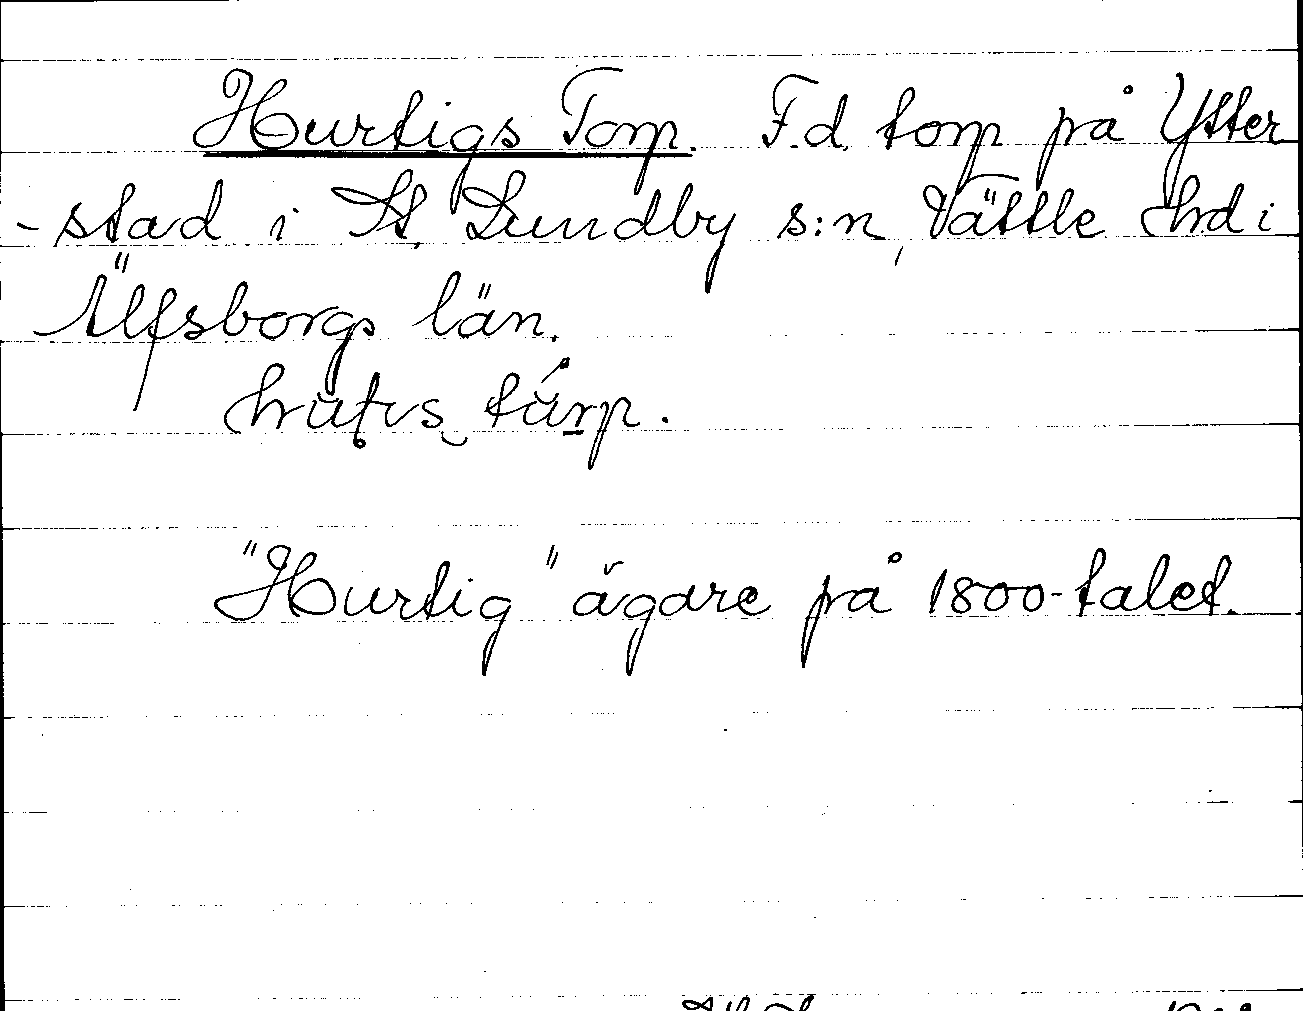 Hurtigs Torp. F.d. torp på Ytter
-stad i St. Lundby s:n, Vättle hrd i
Älfsborgs län.
"Hurtig" ägare på 1800-talet.